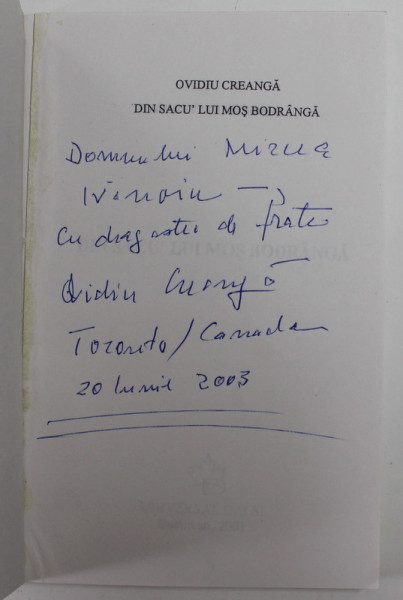 OVIDIU CREANGĂ
DIN SACU' LUI MOȘ BODRÂNGĂ
Domnului Mircea
Ivănoiu –
Cu dragostea de frate
Ovidiu Creangă
Toronto/Canada
20 Iunie 2003